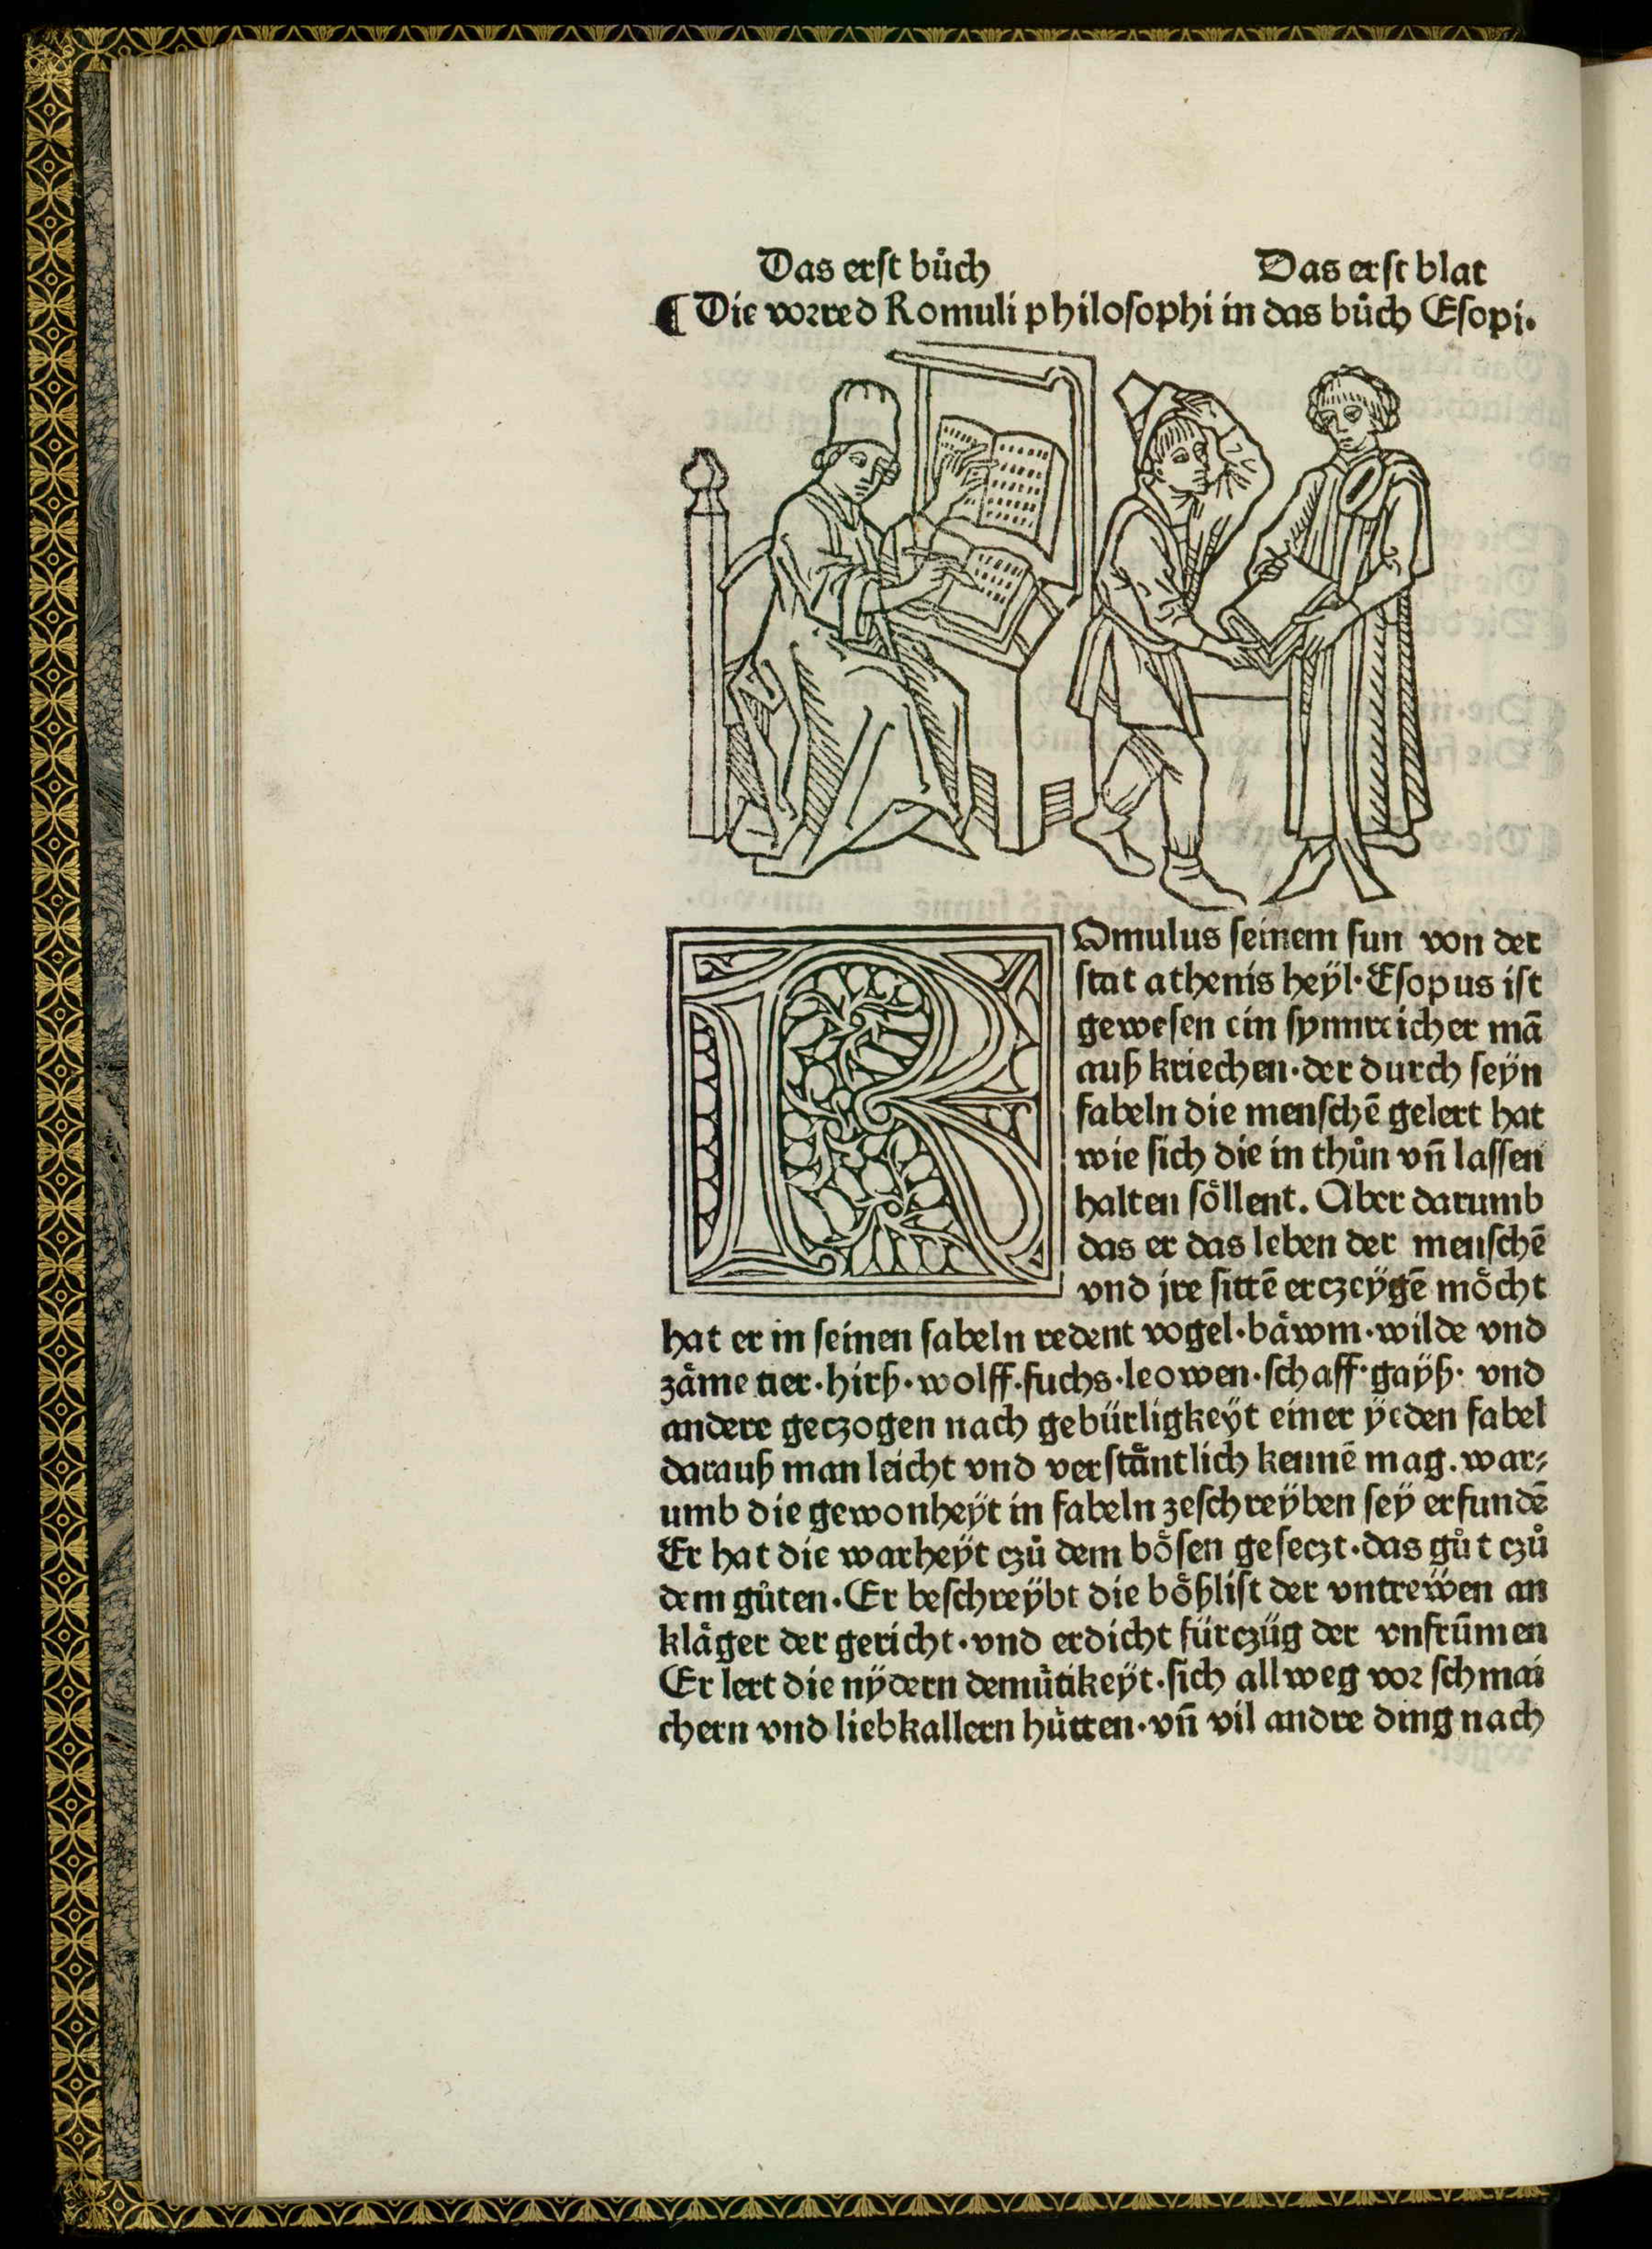 Das erst bůch Das erst blat
¶ Die vorred Romuli philosophi in das bůch Esopi.
ROmulus seinem sun von der
stat athenis heÿl·Esopus ist
gewesen ein synnreicher mā
auß kriechen·der durch seÿn
fabeln die menschē gelert hat
wie sich die in thůn vñ lassen
halten söllent. Aber darumb
das er das leben der menschē
vnd jre sittē erczeÿgē möcht
hat er in seinen fabeln redent vogel·bäwm·wilde vnd
zäme tier·hirß·wolff·fuchs·leowen·schaff·gaÿß· vnd
andere geczogen nach gebürligkeÿt einer ÿeden fabel
darauß man leicht vnd verstäntlich kennē mag. war⸗
umb die gewonheÿt in fabeln zeschreÿben seÿ erfundē
Er hat die warheÿt czů dem bösen geseczt·das gůt czů
dem gůten·Er beschreÿbt die bößlist der vntrewen an
kläger der gericht·vnd erdicht fürczüg der vnfrūmen
Er lert die nÿdern demütikeÿt·sich allweg vor schmai
chern vnd liebkallern hütten·vñ vil andre ding nach